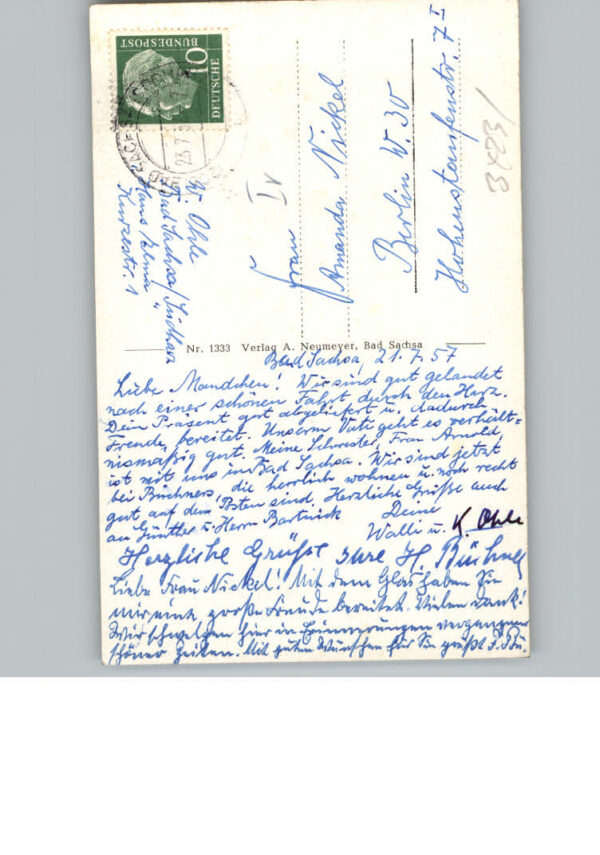 10
DEUTSCHE
BUNDESPOST
W. Ohle
Bad Sachsa/Südharz
Haus
Kurzestr. 1
IV
Frau
Amanda Nickel
Berlin W. 30
Hohenstaufenstr. 7 I
Nr. 1333 Verlag A. Neumeyer, Bad Sachsa
Bad Sachsa, 21.7.57
Liebe Mandchen! Wir sind gut gelandet
nach einer schönen Fahrt durch den Harz.
Dein Präsent gert abgeliefert u. dadurch
Freude bereitet. Unserm Vati geht es verhält-
nismäßig gut. Meine Schwester, Frau Arnold,
ist mit uns in Bad Sachsa. Wir sind jetzt
bei Büchners, die herrlich wohnen u. noch recht
gut auf dem Posten sind. Herzliche Grüße auch
an Günther u. Herrn Bartnick Deine
Walli u. K. Ohle
Herzliche Grüße Ihre H. Büchner
Liebe Frau Nickel! Mit dem Glas haben Sie
mir eine große Freude bereitet. Vielen Dank!
Wir schwelgen hier in Erinnerungen vergangener
schöner Zeiten. Mit guten Wünschen für Sie grüßt